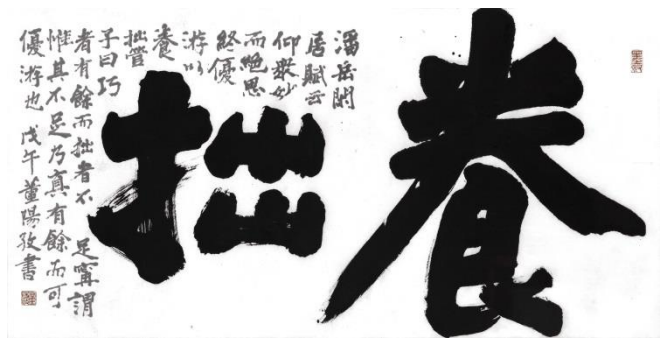 養拙
潘岳閑
居賦云
仰眾妙
而絕思
終優
游以
養
拙管
子曰巧
者有餘而拙者不足甯謂
惟其不足乃真有餘而可
優游也 戊午董陽孜書